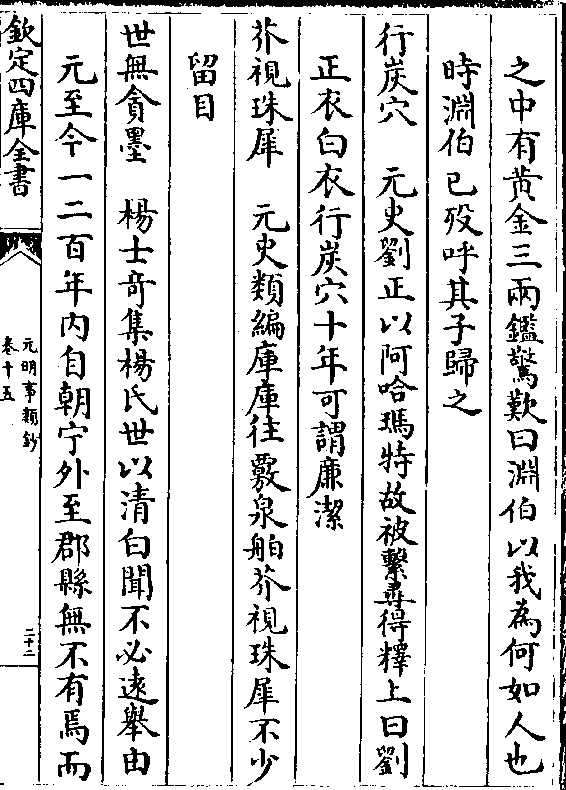 之中有黄金三兩鑑驚歎曰淵伯以我為何如人也
時淵伯已歿呼其子歸之
行炭穴　元史劉正以阿哈瑪特故被繫尋得釋上曰劉
正衣白衣行炭穴十年可謂廉潔
芥視珠犀　元史類編庫庫往覈泉舶芥視珠犀不少
留目
世無貪墨　楊士竒集楊氏世以清白聞不必逺舉由
元至今一二百年内自朝宁外至郡縣無不有焉而
欽定四庫全書
元明事類鈔
卷十五
二十二